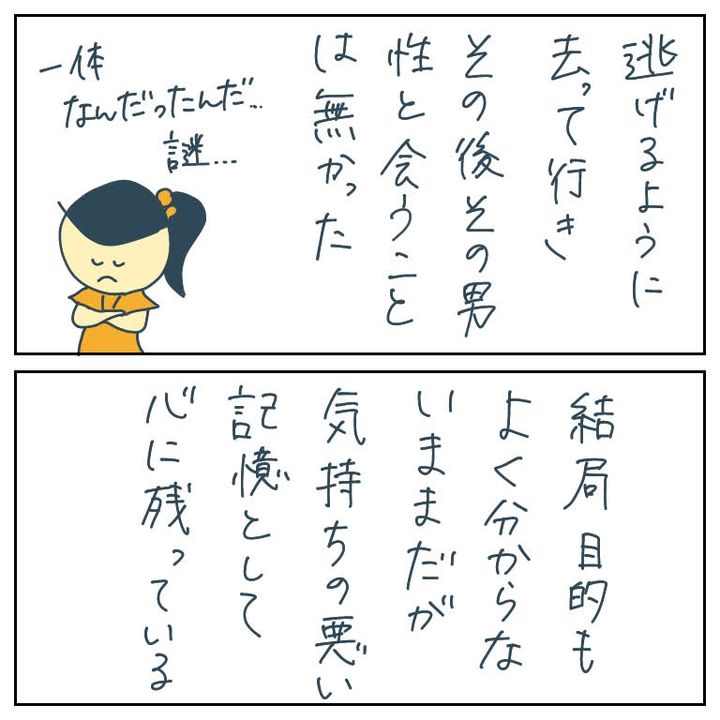 逃げるように
去って行き
その後その男
性と会うこと
は無かった
一体
なんだったんだ…
謎…
結局目的も
よく分からな
いままだが
気持ちの悪い
記憶として
心に残っている